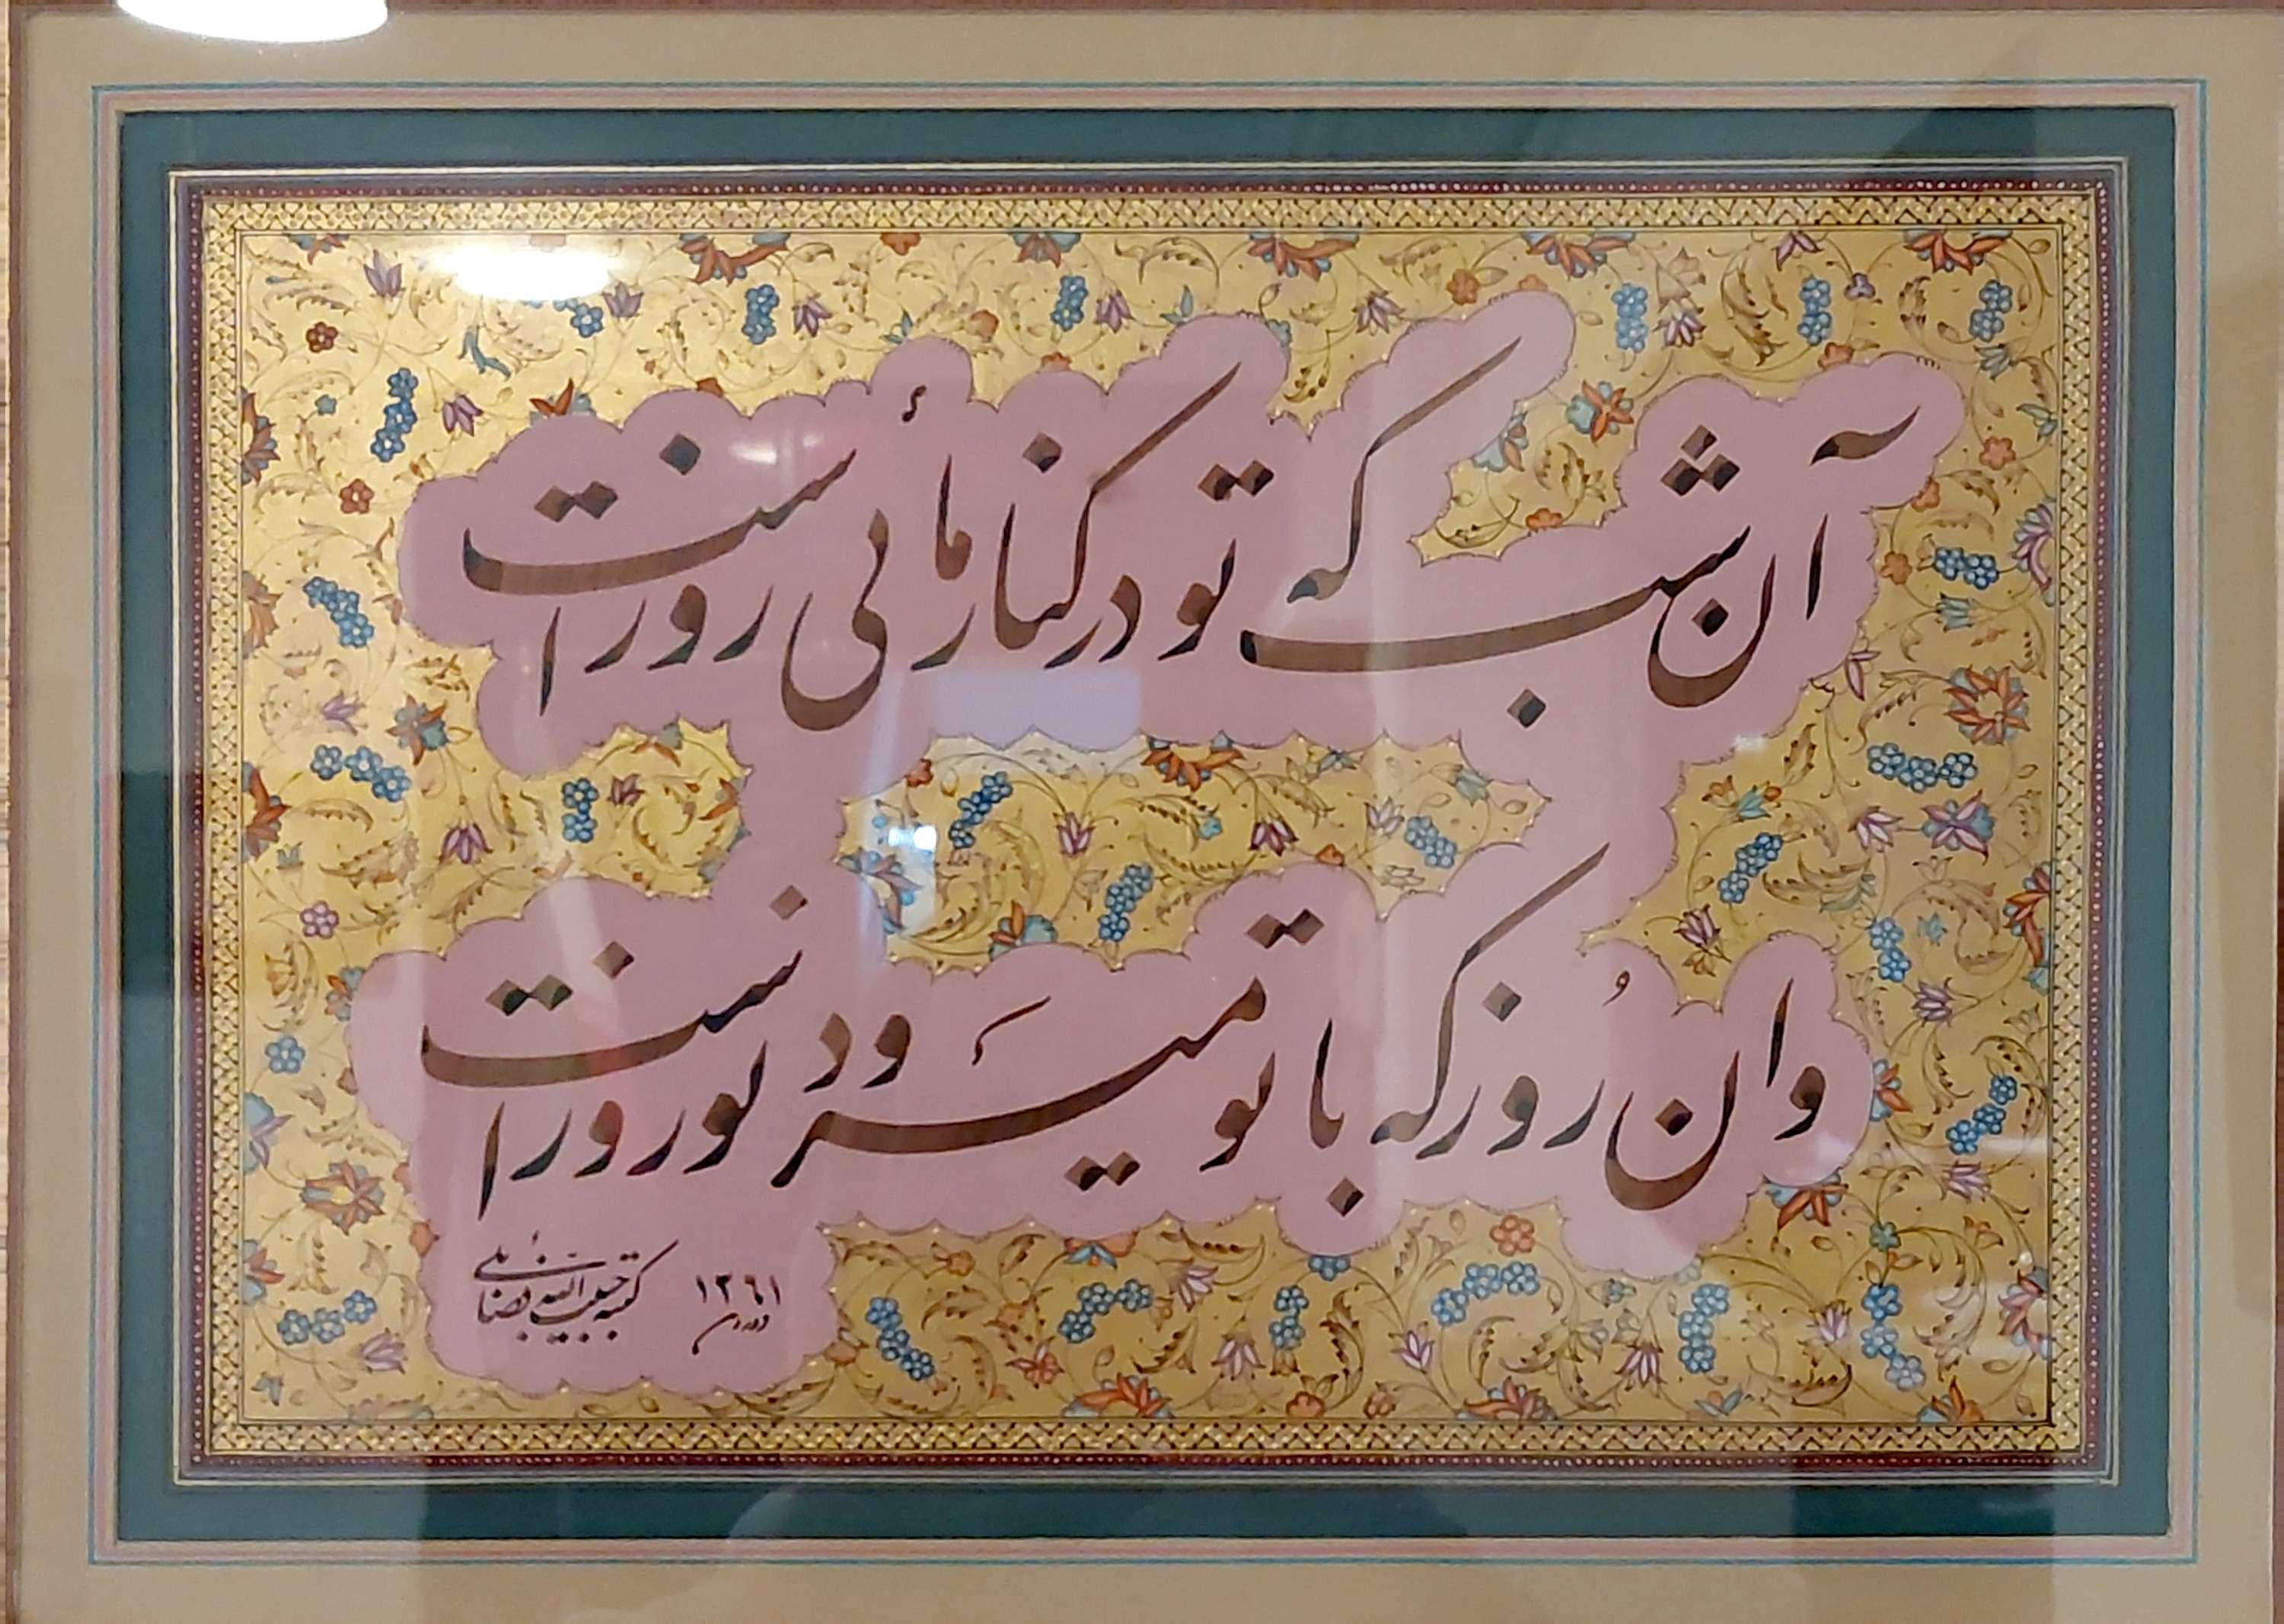 آن شب که تو در کنار مائی روز است
وان روز که با تو میرَود نوروز است
۱۳۶۱
کتبه حبیب الله فضائلی